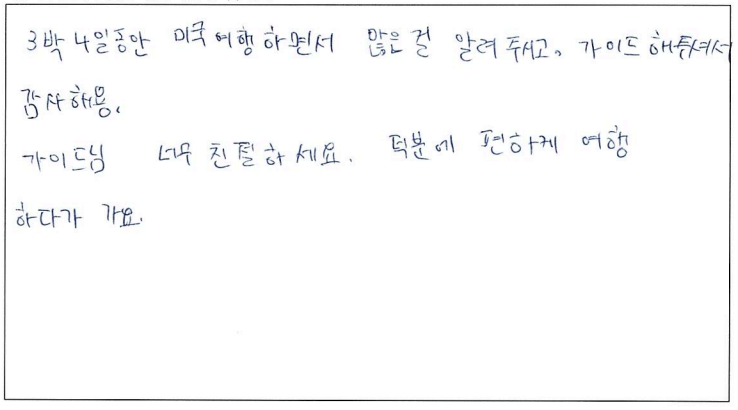 3박 4일동안 미국여행하면서 많은걸 알려주시고, 가이드해주셔서
감사해용.
가이드님 너무 친절하세요. 덕분에 편하게 여행
하다가 가요.